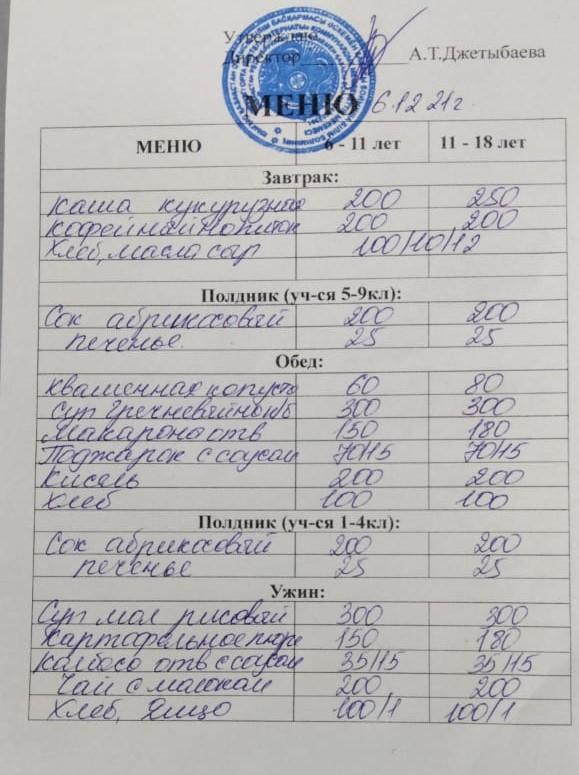 Утверждаю
Директор А.Т.Джетыбаева
МЕНЮ 6.12.21г
МЕНЮ 6 - 11 лет 11 - 18 лет
Завтрак:
Каша кукурузная 200 250
Кофейный напиток 200 200
Хлеб, масло сыр 100/10/12
Полдник (уч-ся 5-9кл):
Сок абрикосовый 200 200
печенье. 25 25
Обед:
Квашенная капуста 60 80
Суп гречневый на к/б 300 300
Макароны отв 150 180
Поджарок с соусом 70/15 70/15
Кисель 200 200
Хлеб 100 100
Полдник (уч-ся 1-4кл):
Сок абрикосовый 200 200
печенье 25 25
Ужин:
Суп мол рисовый 300 300
Картофельное пюре 150 180
Колбаса отв с соусом 35/15 35/15
Чай с молоком 200 200
Хлеб, Яйцо 100/1 100/1